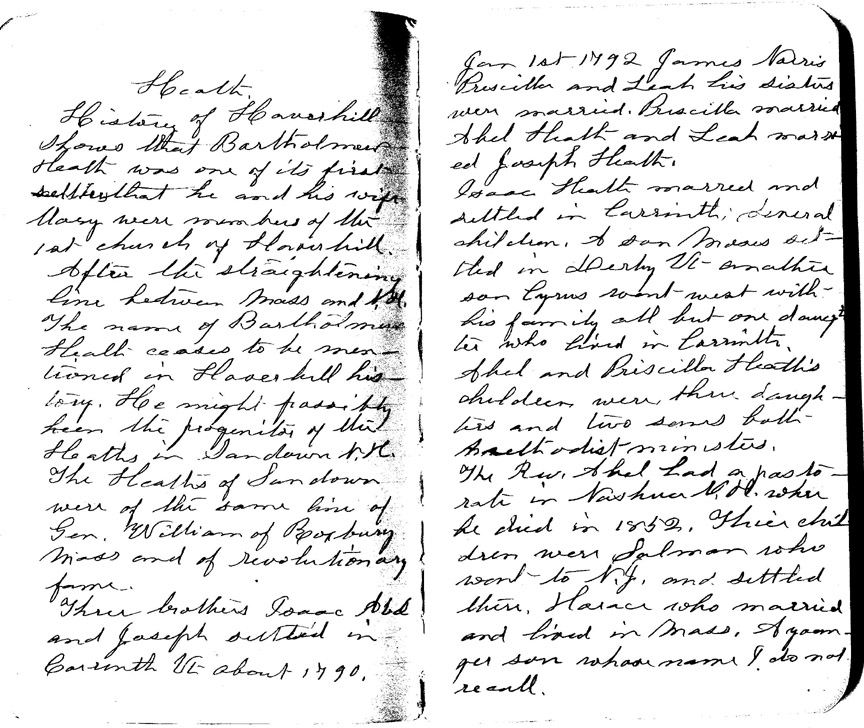 Heath.
History of Haverhill
shows that Bartholmew
Heath was one of its first
settlers that he and his wife
Mary were members of the
1st church of Haverhill.
After the straightening
line between Mass and N.H.
The name of Bartholmew
Heath ceases to be men-
tioned in Haverhill his-
tory. He might possibly
been the progenitor of the
Heaths in Sandown N.H.
The Heaths of Sandown
were of the same line of
Gen. William of Roxbury
Mass and of revolutionary
fame.
Three brothers Isaac Abel
and Joseph settled in
Corrinth Vt about 1790.
Jan 1st 1792 James Norris
Priscilla and Leah his sisters
were married. Priscilla married
Abel Heath and Leah marri-
ed Joseph Heath.
Isaac Heath married and
settled in Corrinth; several
children. A son Moses set-
tled in Derby Vt another
son Cyrus went west with
his family all but one daugh
ter who lived in Corrinth.
Abel and Priscilla Heath's
children were three daugh-
ters and two sons both
methodist ministers.
The Rev. Abel had a pasto-
rate in Nashua N.H. where
he died in 1852. Thier chil
dren were Salman who
went to N.J. and settled
there. Horace who married
and lived in Mass. A youn-
ger son whose name I do not
recall.